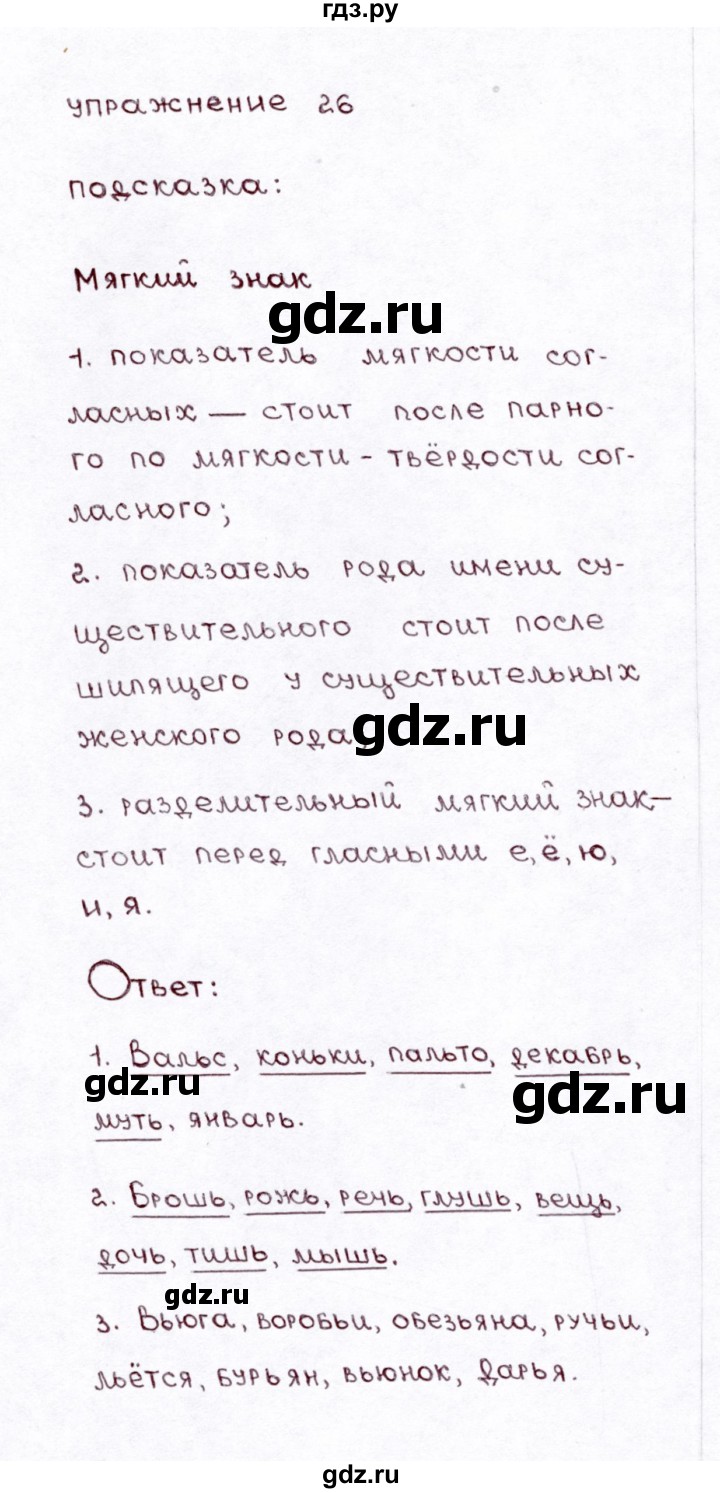 гдз.ру
упражнение 26
подсказка:
Мягкий знак
gdz.ru
1. показатель мягкости сог-
ласных — стоит после парно-
го по мягкости - твёрдости сог-
ласного;
2. показатель рода имени су-
ществительного стоит после
шипящего у существительных
женского рода
gdz.ru
3. разделительный мягкий знак-
стоит перед гласными е, ё, ю,
и, я.
Ответ:
1. Вальс, коньки, пальто, декабрь,
gdz.ru
gdz.ru
муть, январь.
2. Брошь, рожь, речь, глушь, вещь,
дочь, тишь, мышь.
gdz.ru
3. Вьюга, воробьи, обезьяна, ручьи,
льётся, бурьян, вьюнок, Дарья.
gdz.ru